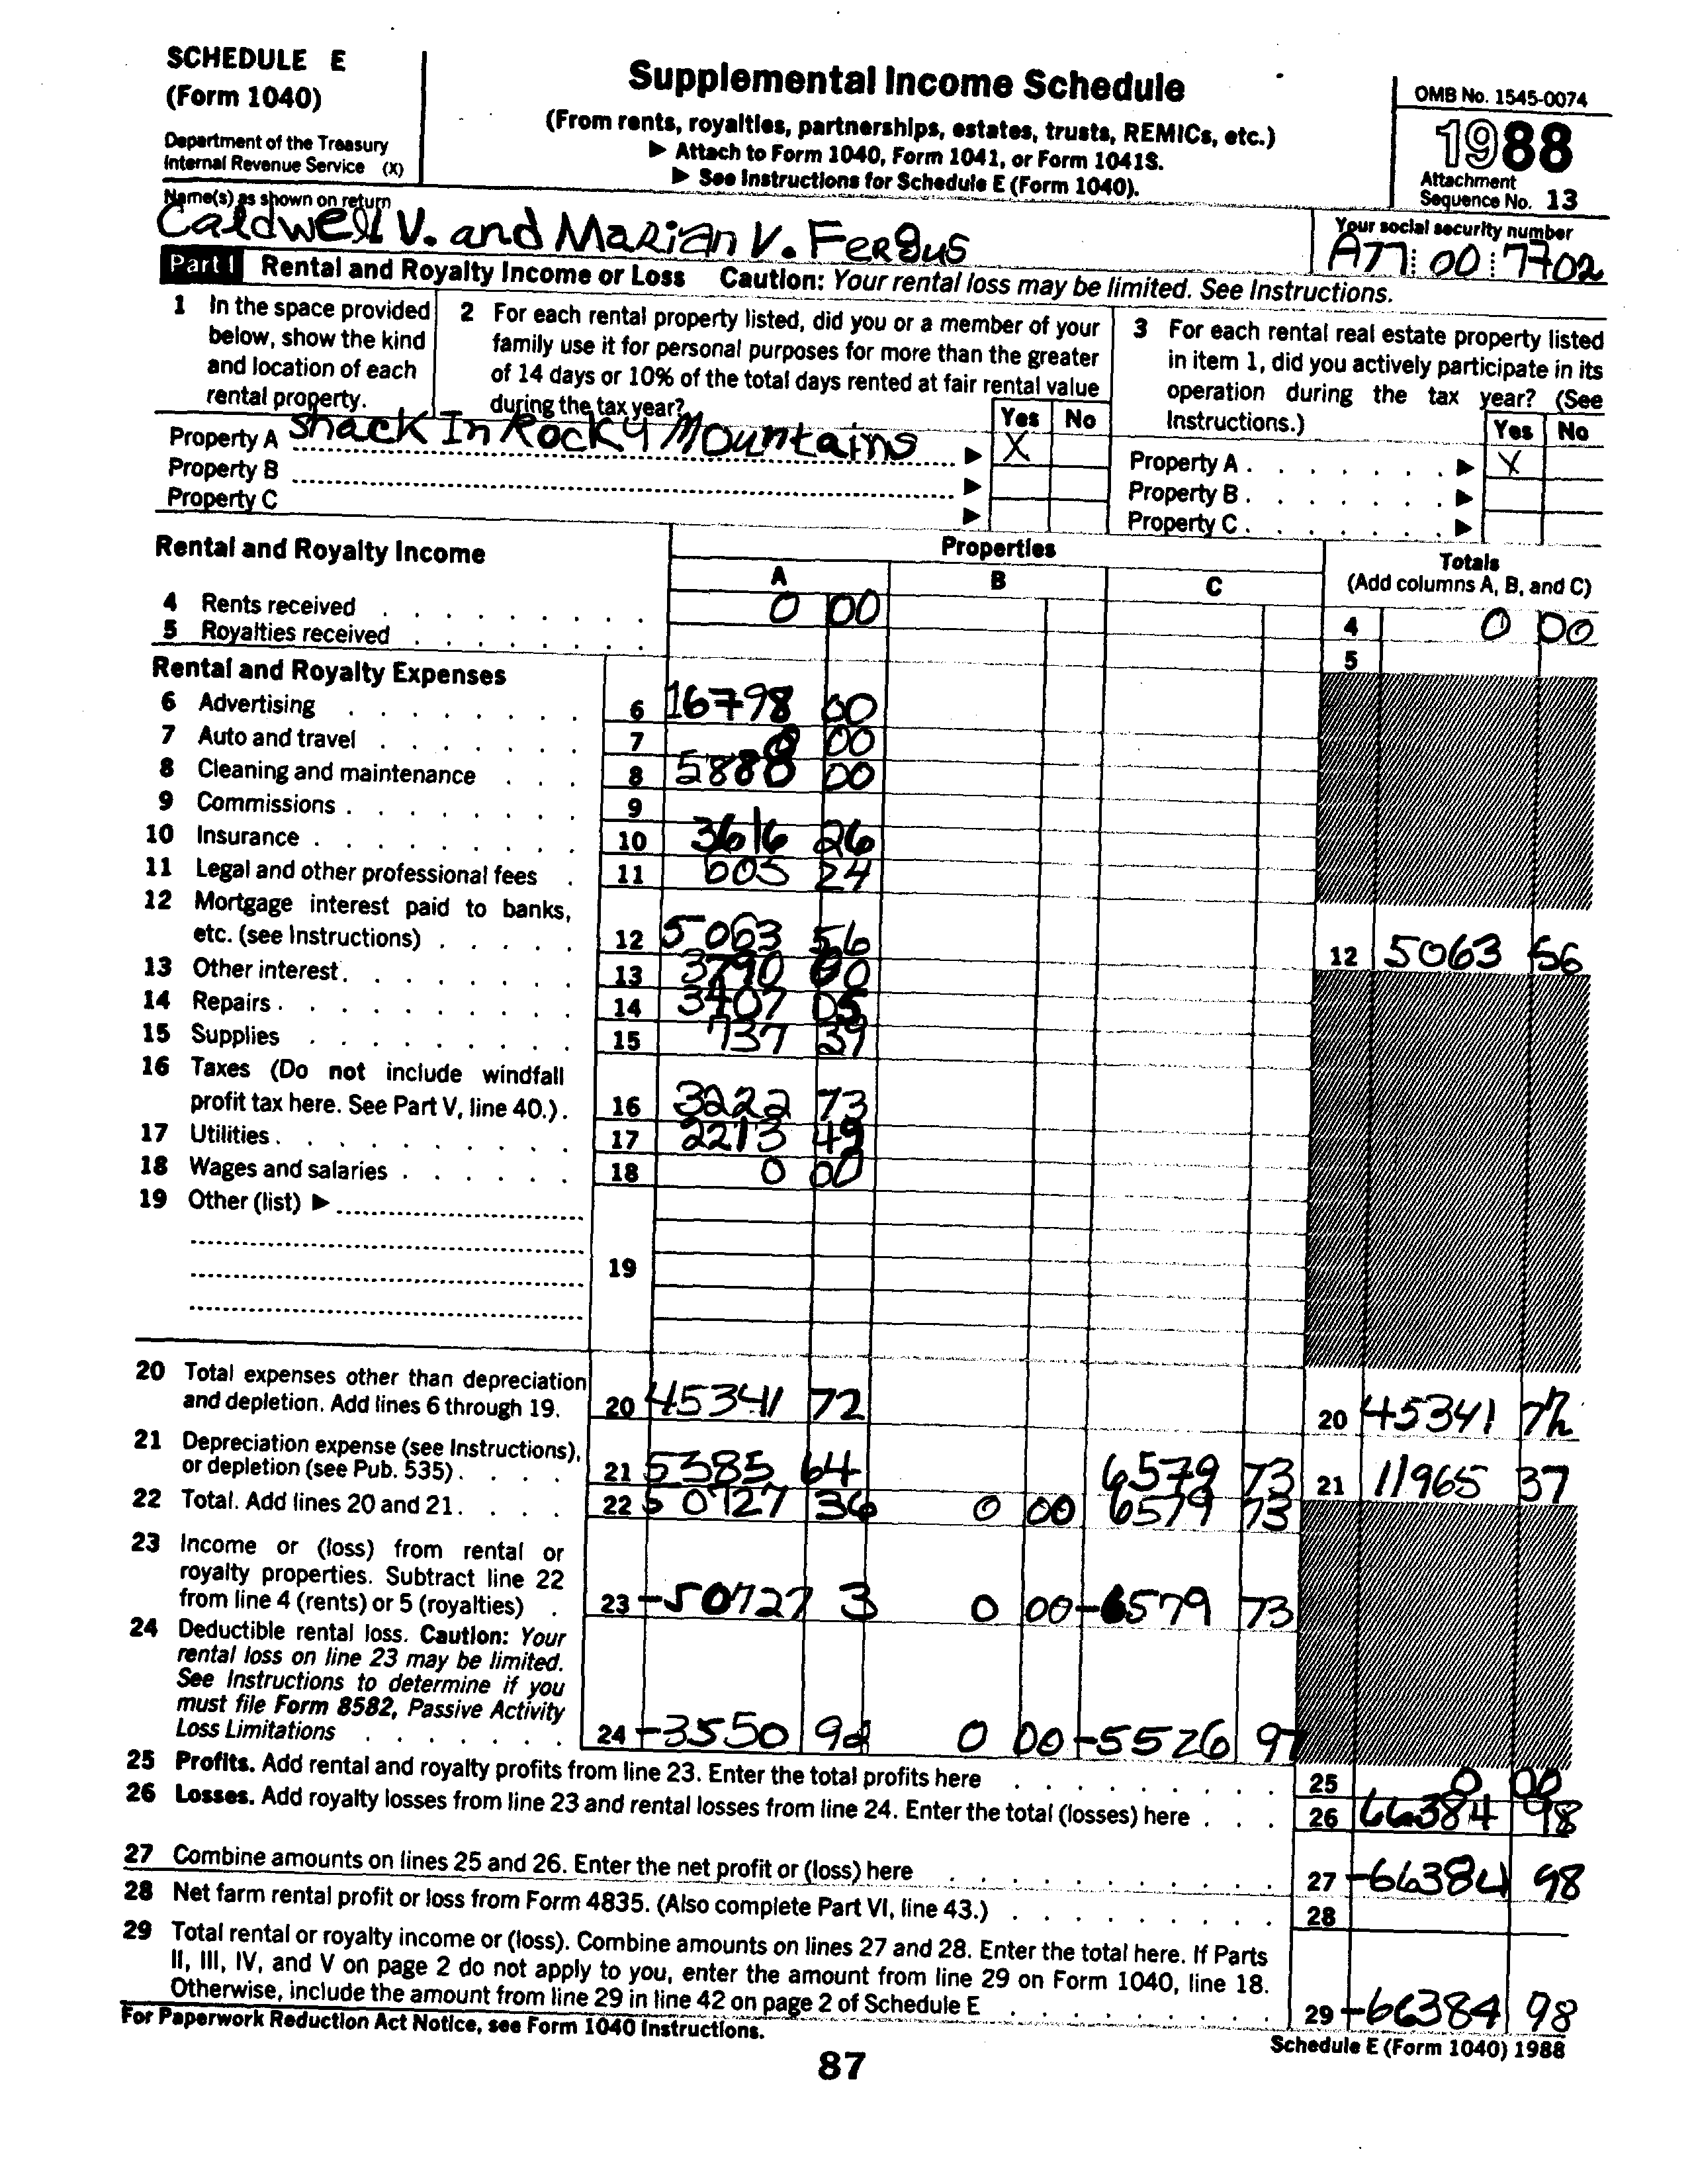 SCHEDULE E
(Form 1040)
Department of the Treasury
Internal Revenue Service (X)
Supplemental Income Schedule
(From rents, royalties, partnerships, estates, trusts, REMICs, etc.)
▶ Attach to Form 1040, Form 1041, or Form 1041S.
▶ See Instructions for Schedule E (Form 1040).
OMB No. 1545-0074
1988
Attachment
Sequence No. 13
Name(s) as shown on return
Caldwell V. and Marian V. Fergus
Your social security number
A77 00 7702
Part I Rental and Royalty Income or Loss Caution: Your rental loss may be limited. See Instructions.
1 In the space provided
below, show the kind
and location of each
rental property.
2 For each rental property listed, did you or a member of your
family use it for personal purposes for more than the greater
of 14 days or 10% of the total days rented at fair rental value
during the tax year?
Yes No
3 For each rental real estate property listed
in item 1, did you actively participate in its
operation during the tax year? (See
Instructions.)
Yes No
Property A Shack In Rocky Mountains ▶ X
Property B ▶
Property C ▶
Property A . . . . . . . ▶ X
Property B . . . . . . . ▶
Property C . . . . . . . ▶
Rental and Royalty Income
Properties
A B C
Totals
(Add columns A, B, and C)
4 Rents received . . . . . . . . 0 00 4 0 00
5 Royalties received . . . . . . . 5
Rental and Royalty Expenses
6 Advertising . . . . . . . . 6 16798 00
7 Auto and travel . . . . . . . 7 0 00
8 Cleaning and maintenance . . . 8 5888 00
9 Commissions . . . . . . . . 9
10 Insurance . . . . . . . . . 10 3616 26
11 Legal and other professional fees . 11 605 24
12 Mortgage interest paid to banks,
etc. (see Instructions) . . . . . 12 5063 56 12 5063 56
13 Other interest . . . . . . . . 13 3790 00
14 Repairs . . . . . . . . . . 14 3407 05
15 Supplies . . . . . . . . . 15 737 39
16 Taxes (Do not include windfall
profit tax here. See Part V, line 40.) . 16 3222 73
17 Utilities . . . . . . . . . . 17 2213 49
18 Wages and salaries . . . . . . 18 0 00
19 Other (list) ▶
19
20 Total expenses other than depreciation
and depletion. Add lines 6 through 19. 20 45341 72 20 45341 72
21 Depreciation expense (see Instructions),
or depletion (see Pub. 535) . . . . 21 5385 64 6579 73 21 11965 37
22 Total. Add lines 20 and 21 . . . . 22 50727 36 0 00 6579 73
23 Income or (loss) from rental or
royalty properties. Subtract line 22
from line 4 (rents) or 5 (royalties) . 23 -50727 3 0 00 -6579 73
24 Deductible rental loss. Caution: Your
rental loss on line 23 may be limited.
See Instructions to determine if you
must file Form 8582, Passive Activity
Loss Limitations . . . . . . . 24 -3550 92 0 00 -5526 97
25 Profits. Add rental and royalty profits from line 23. Enter the total profits here . . . . . . . . . 25 0 00
26 Losses. Add royalty losses from line 23 and rental losses from line 24. Enter the total (losses) here . . . 26 66384 98
27 Combine amounts on lines 25 and 26. Enter the net profit or (loss) here . . . . . . . . . . . 27 -66384 98
28 Net farm rental profit or loss from Form 4835. (Also complete Part VI, line 43.) . . . . . . . . . 28
29 Total rental or royalty income or (loss). Combine amounts on lines 27 and 28. Enter the total here. If Parts
II, III, IV, and V on page 2 do not apply to you, enter the amount from line 29 on Form 1040, line 18.
Otherwise, include the amount from line 29 in line 42 on page 2 of Schedule E . . . . . . . . . 29 -66384 98
For Paperwork Reduction Act Notice, see Form 1040 Instructions.
Schedule E (Form 1040) 1988
87